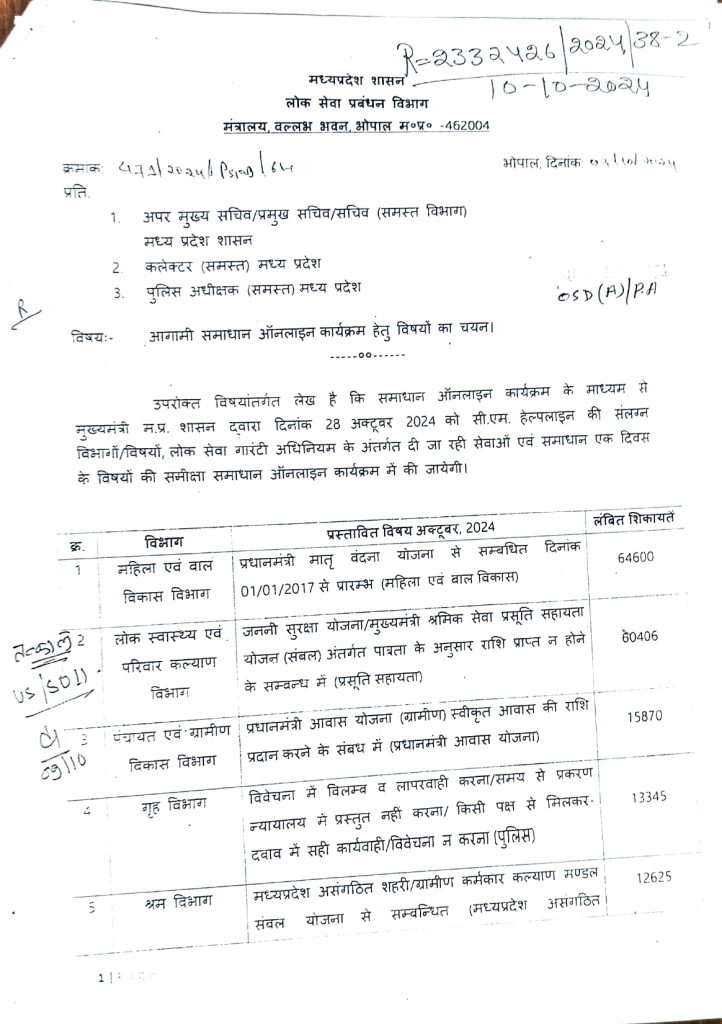 R=2332426/2024/38-2
10-10-2024
मध्यप्रदेश शासन
लोक सेवा प्रबंधन विभाग
मंत्रालय, वल्लभ भवन, भोपाल म०प्र० -462004
क्रमांक: /2024/
भोपाल, दिनांक:
प्रति,
1. अपर मुख्य सचिव/प्रमुख सचिव/सचिव (समस्त विभाग)
मध्य प्रदेश शासन
2. कलेक्टर (समस्त) मध्य प्रदेश
3. पुलिस अधीक्षक (समस्त) मध्य प्रदेश
OSD(A)/P.A
R
विषयः- आगामी समाधान ऑनलाइन कार्यक्रम हेतु विषयों का चयन।
-----oo------
उपरोक्त विषयांतर्गत लेख है कि समाधान ऑनलाइन कार्यक्रम के माध्यम से
मुख्यमंत्री म.प्र. शासन द्वारा दिनांक 28 अक्टूबर 2024 को सी.एम. हेल्पलाइन की संलग्न
विभागों/विषयों, लोक सेवा गारंटी अधिनियम के अंतर्गत दी जा रही सेवाओं एवं समाधान एक दिवस
के विषयों की समीक्षा समाधान ऑनलाइन कार्यक्रम में की जायेगी।
क्र. विभाग प्रस्तावित विषय अक्टूबर, 2024 लंबित शिकायतें
1 महिला एवं बाल प्रधानमंत्री मातृ वंदना योजना से सम्बंधित दिनांक 64600
विकास विभाग 01/01/2017 से प्रारम्भ (महिला एवं बाल विकास)
तत्काल
2 लोक स्वास्थ्य एवं जननी सुरक्षा योजना/मुख्यमंत्री श्रमिक सेवा प्रसूति सहायता 60406
परिवार कल्याण योजन (संबल) अंतर्गत पात्रता के अनुसार राशि प्राप्त न होने
विभाग के सम्बन्ध में (प्रसूति सहायता)
US/SO(1)
3 पंचायत एवं ग्रामीण प्रधानमंत्री आवास योजना (ग्रामीण) स्वीकृत आवास की राशि 15870
विकास विभाग प्रदान करने के संबध में (प्रधानमंत्री आवास योजना)
09/10
4 गृह विभाग विवेचना में विलम्ब व लापरवाही करना/समय से प्रकरण 13345
न्यायालय में प्रस्तुत नहीं करना/ किसी पक्ष से मिलकर
दवाव में सही कार्यवाही/विवेचना न करना (पुलिस)
5 श्रम विभाग मध्यप्रदेश असंगठित शहरी/ग्रामीण कर्मकार कल्याण मण्डल 12625
संबल योजना से सम्बन्धित (मध्यप्रदेश असंगठित
1 |